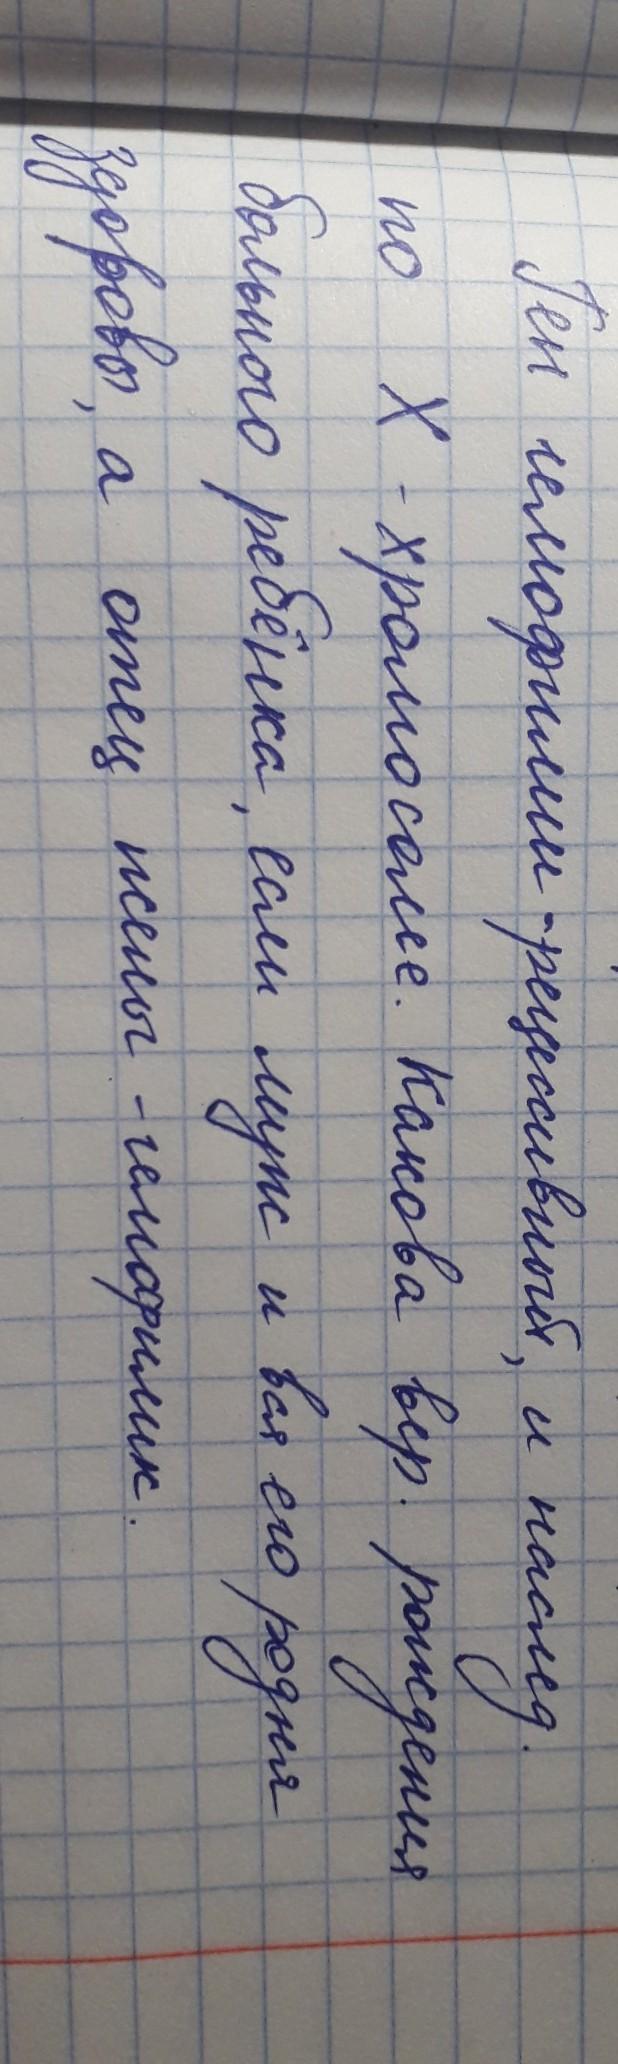 Ген гемофилии - рецессивный, и наслед.
по X - хромосоме. Какова вер. рождения
больного ребёнка, если муж и вся его родня
здоровы, а отец жены - гемофилик.